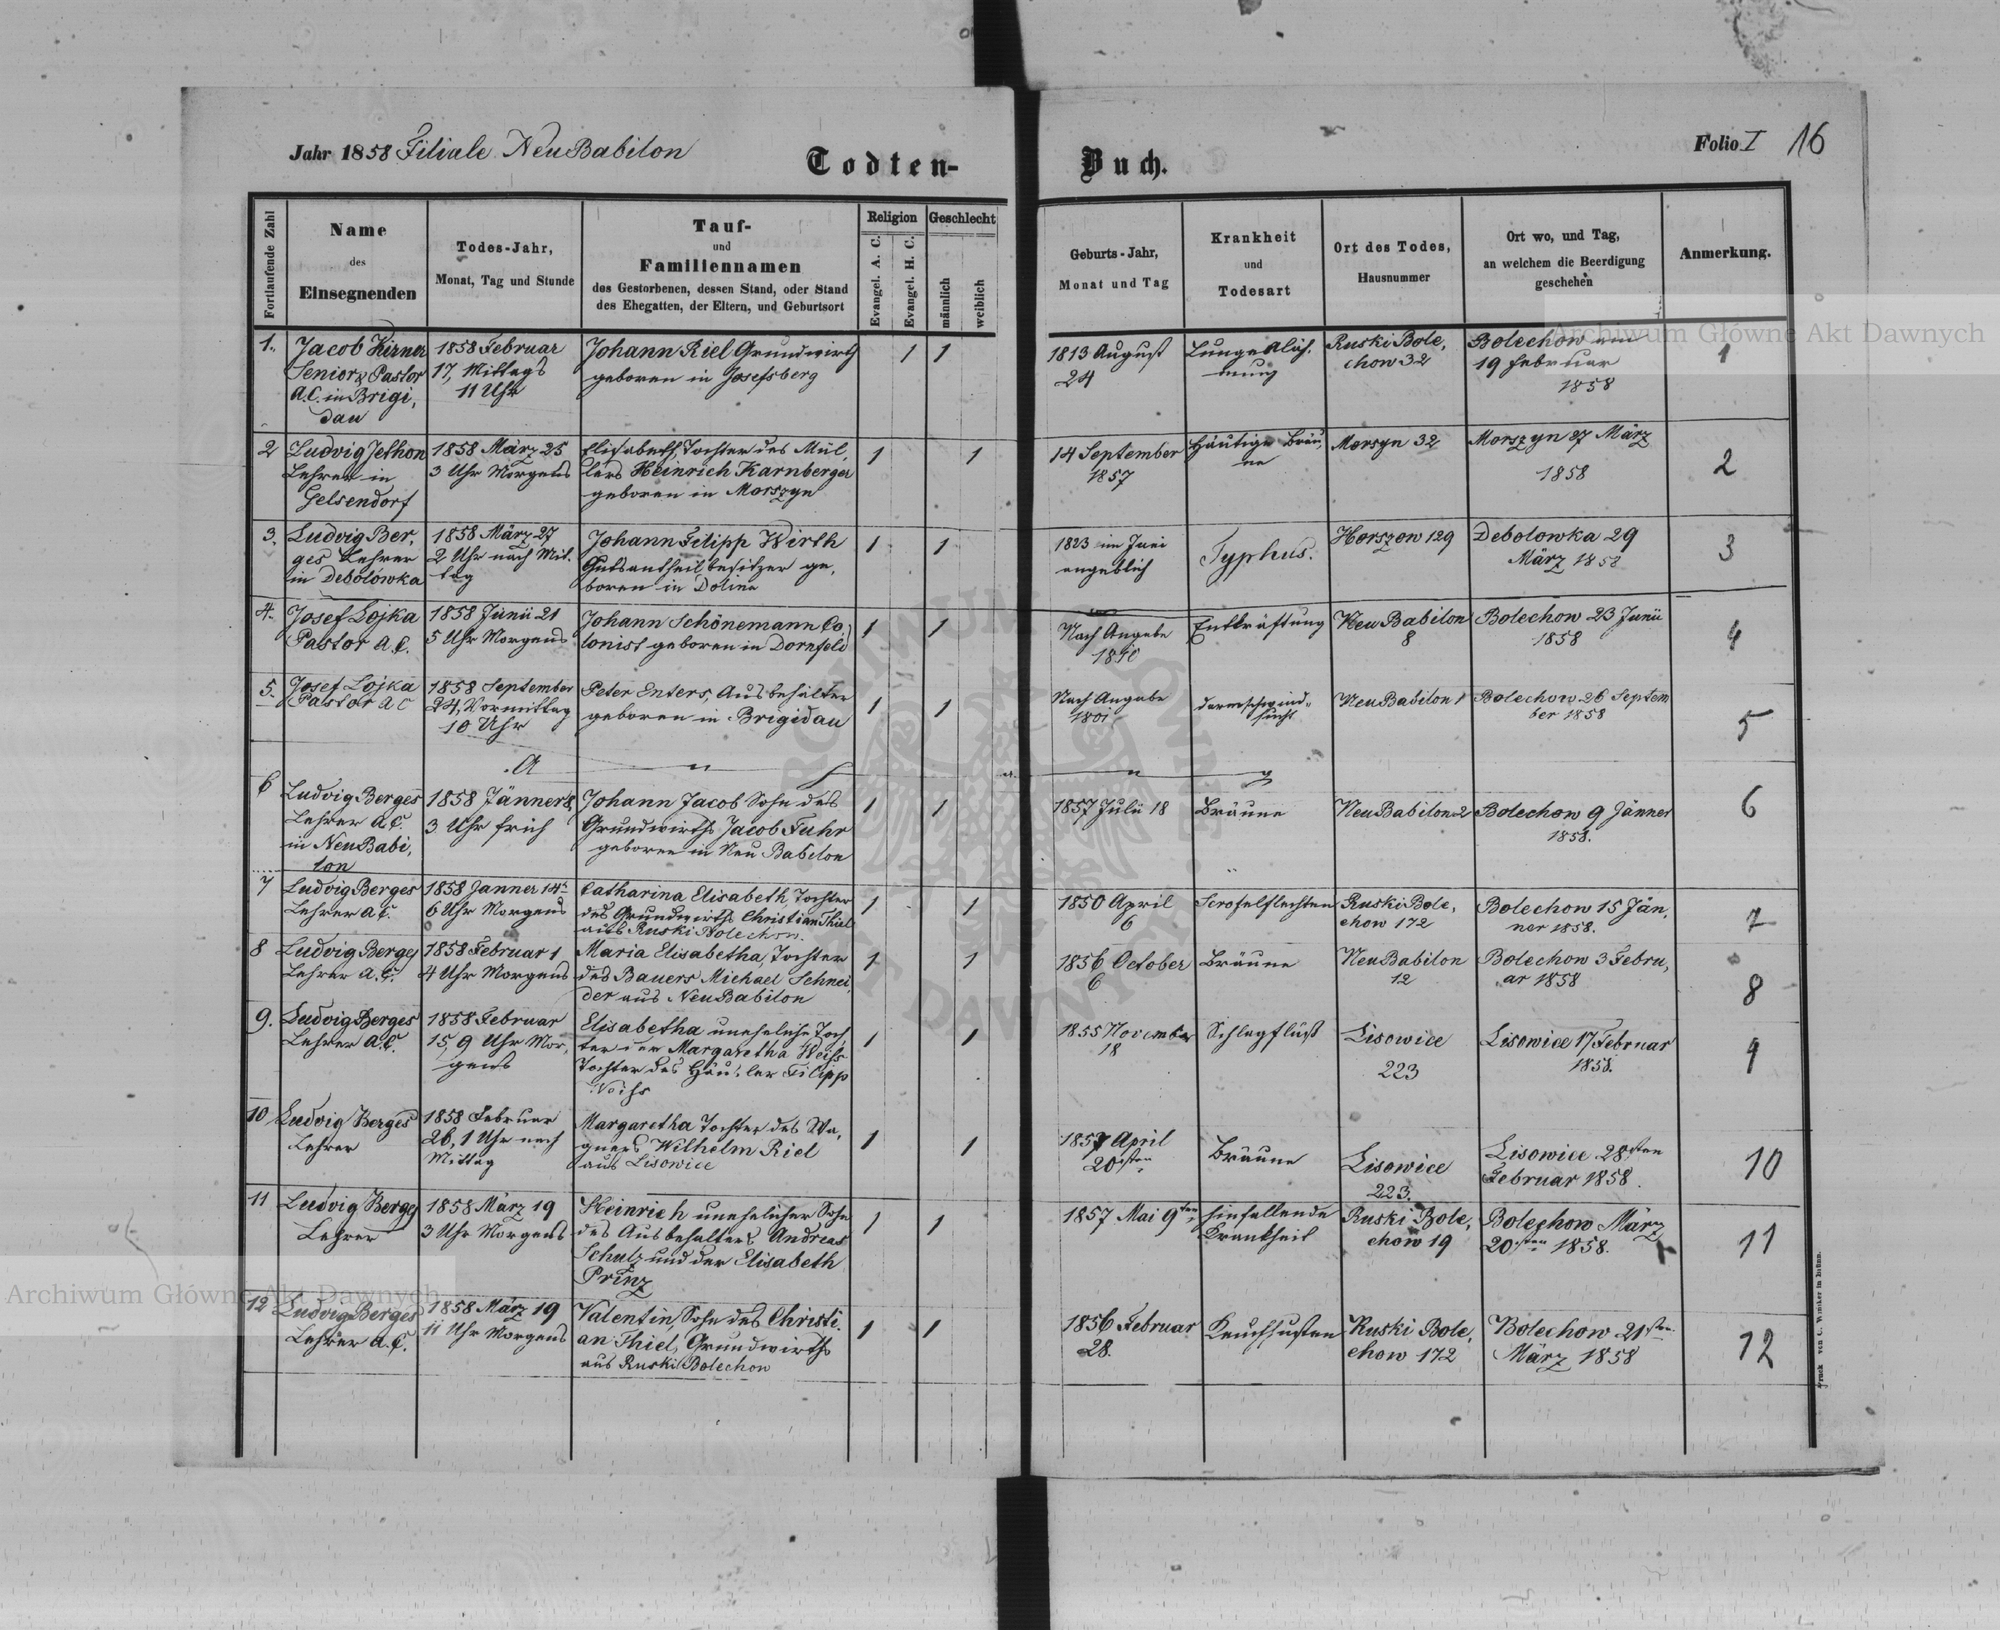 Jahr 1858 Filiale NeuBabilon
Todten-Buch.
Folio I 16
Fortlaufende Zahl
Name
des
Einsegnenden
Todes-Jahr,
Monat, Tag und Stunde
Tauf-
und
Familiennamen
des Gestorbenen, dessen Stand, oder Stand
des Ehegatten, der Eltern, und Geburtsort
Religion
Evangel. A. C.
Evangel. H. C.
Geschlecht
männlich
weiblich
Geburts-Jahr,
Monat und Tag
Krankheit
und
Todesart
Ort des Todes,
Hausnummer
Ort wo, und Tag,
an welchem die Beerdigung
geschehen
Anmerkung.
1.
Jacob Kirner
Senior & Pastor
A.C. in Brigi,
dau
1858 Februar
17, Mittags
11 Uhr
Johann Riel Grundwirth
geboren in Josefsberg
1
1
1813 August
24
Lungenläh,
mung
Ruski Bole,
chow 32
Bolechow am
19 Februar
1858
1
2
Ludvig Jethon
Lehrer in
Gelsendorf
1858 März 25
3 Uhr Morgens
Elisabeth, Tochter des Mül,
lers Heinrich Karnberger
geboren in Morszyn
1
1
14 September
1857
Häutige Bräu,
ne
Morsyn 32
Morszyn 27 März
1858
2
3.
Ludvig Ber,
ges Lehrer
in Debolowka
1858 März 27
2 Uhr nach Mit.
tag
Johann Filipp Wirth
Gutsantheil besitzer ge,
boren in Dolina
1
1
1823 im Juni
angeblich
Typhus.
Horszow 129
Debolowka 29
März 1858
3
4.
Josef Lojka
Pastor A.C.
1858 Junii 21
5 Uhr Morgens
Johann Schönemann Co,
lonist geboren in Dornfeld
1
1
Nach Angabe
Entkräftung
Neu Babilon
8
Bolechow 23 Junii
1858
4
5.
Josef Lojka
Pastor A C
1858 September
24, Vormittag
10 Uhr
Peter Enters, Ausbehälter
geboren in Brigidau
1
1
Nach Angabe
1801
darmschwind-
sucht
NeuBabilon 1
Bolechow 26 Septem
ber 1858
5
6
Ludvig Berges
Lehrer A.C.
in NeuBabi,
lon
1858 Jänner 8,
3 Uhr früh
Johann Jacob Sohn des
Grundwirths Jacob Fuhr
geboren in Neu Babilon
1
1
1857 Julii 18
Bräune
NeuBabilon 2
Bolechow 9 Jänner
1858.
6
7
Ludvig Berges
Lehrer A.C.
1858 Janner 14
6 Uhr Morgens
Catharina Elisabeth, Tochter
des Grundwirths Christian Thiel
aus Ruski Bolechow.
1
1
1850 April
6
Scrofelflechten
Ruski Bole,
chow 172
Bolechow 15 Jän,
ner 1858.
7
8
Ludvig Berges
Lehrer A.C.
1858 Februar 1
4 Uhr Morgens
Maria Elisabetha, Tochter
des Bauers Michael Schnei,
der aus NeuBabilon
1
1
1856 October
6
Bräune
NeuBabilon
12
Bolechow 3 Febru,
ar 1858
8
9.
Ludvig Berges
Lehrer A.C.
1858 Februar
15, 9 Uhr Mor,
gens
Elisabetha uneheliche Toch,
ter der Margaretha Weihs
Tochter des Häusler Filipp
Weihs
1
1
1855 November
18
Schlagflüß
Lisowice
223
Lisowice 17 Februar
1858.
9
10
Ludvig Berges
Lehrer
1858 Februar
26, 1 Uhr nach
Mittag
Margaretha Tochter des Wa,
gners Wilhelm Riel
aus Lisowice
1
1
1857 April
20sten
Bräune
Lisowice
223.
Lisowice 28sten
Februar 1858.
10
11
Ludvig Berges
Lehrer
1858 März 19
3 Uhr Morgens
Heinrich unehelicher Sohn
des Ausbehälters Andreas
Schulz und der Elisabeth
Prinz
1
1
1857 Mai 9ten
hinfallende
Krankheit
Ruski Bole,
chow 19
Bolechow März
20sten 1858.
11
12
Ludvig Berges
Lehrer A.C.
1858 März 19
11 Uhr Morgens
Valentin, Sohn des Christi,
an Thiel, Grundwirths
aus Ruski Bolechow
1
1
1856 Februar
28.
Keuchhusten
Ruski Bole,
chow 172
Bolechow 21sten
März 1858
12
Druck von C. Winiker in Brünn.
Archiwum Główne Akt Dawnych
Archiwum Główne Akt Dawnych
ARCHIWUM GŁÓWNE AKT DAWNYCH